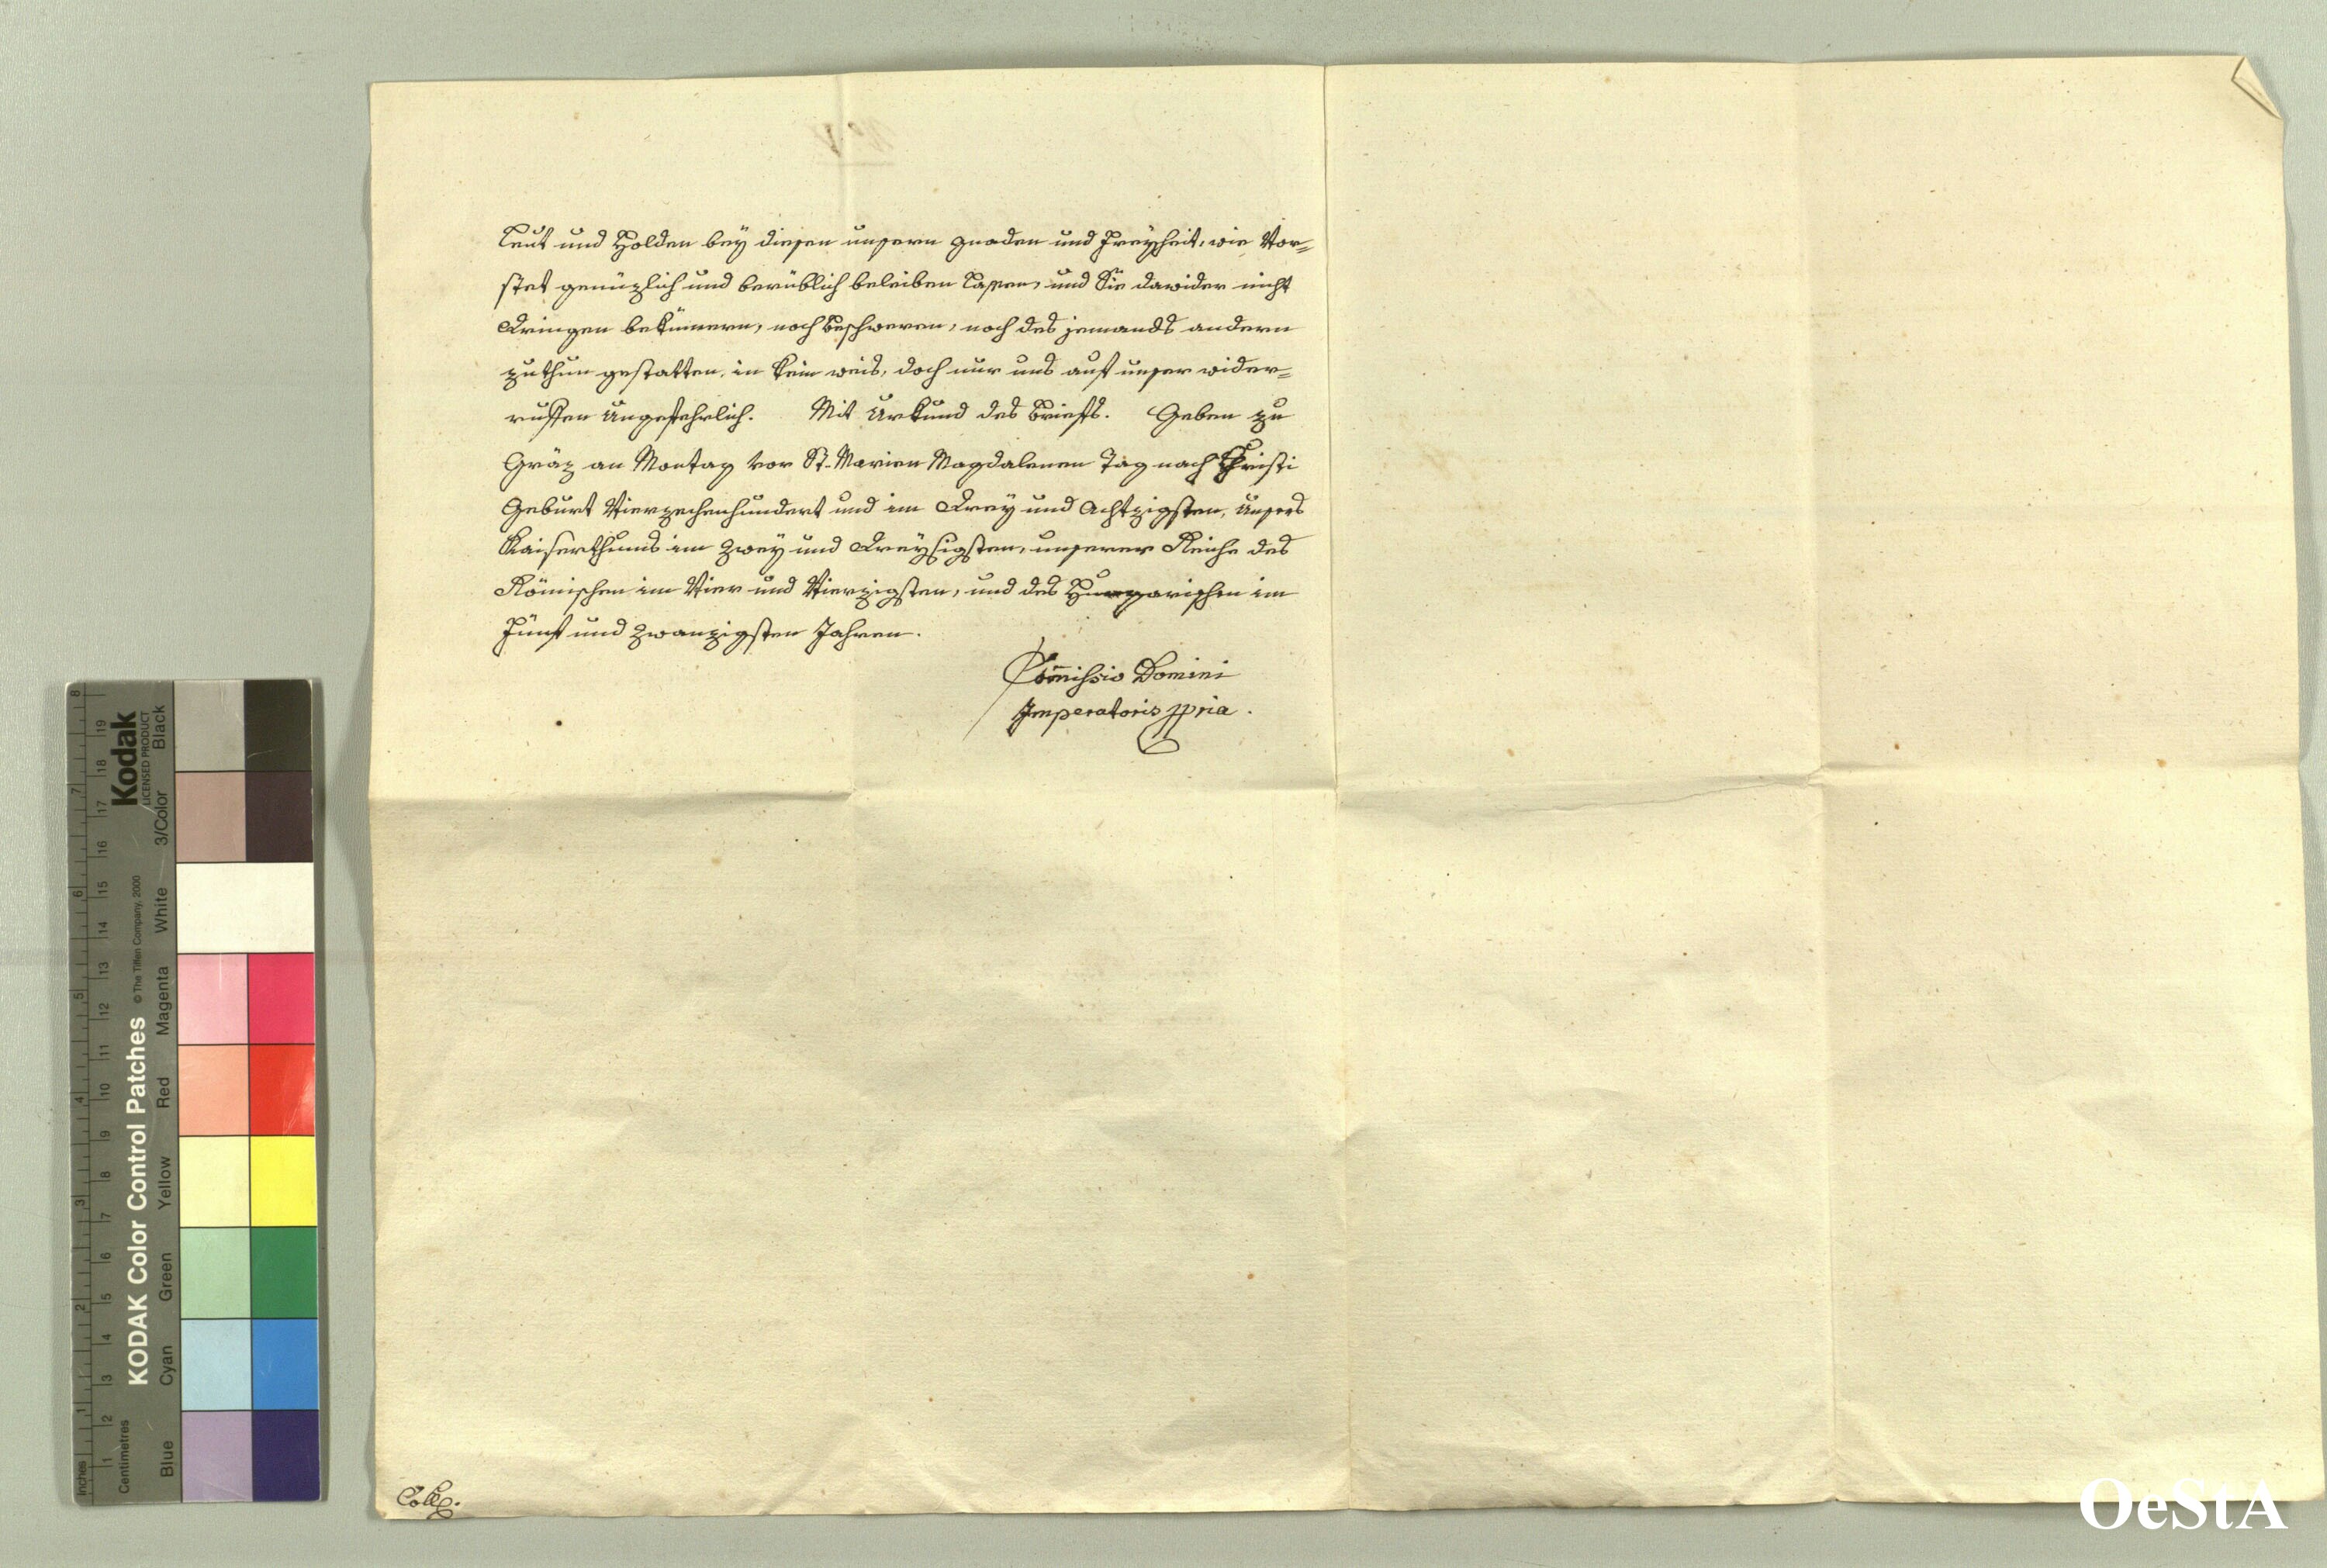 Leut und Holden bey diesen unsern gnaden und Freyheit, wie Vor=
stet genüzlich und berüblich beleiben lassen, und Sie dawider nicht
Dringen bekümern, noch beschweren, noch des jemands andern
zuthun gestatten, in kein weis, doch nur uns auf unser wider=
ruffen Ungefehrlich. Mit Urkund des Briefs. Geben zu
Gräz an Montag vor St. Marien Magdalenen Tag nach Christi
Geburt Vierzechenhundert und im Drey und Achtzigsten, Unsers
Kaiserthums im Zwey und Dreysigsten, unserer Reiche des
Römischen im Vier und Vierzigsten, und des Hungarischen im
Fünf und Zwanzigsten Jahren.
Com̄issio Domini
Imperatoris ppria.
Coll.
Kodak
LICENSED PRODUCT
KODAK Color Control Patches
© The Tiffen Company, 2000
Black
3/Color
White
Magenta
Red
Yellow
Green
Cyan
Blue
Inches
Centimetres
OeStA